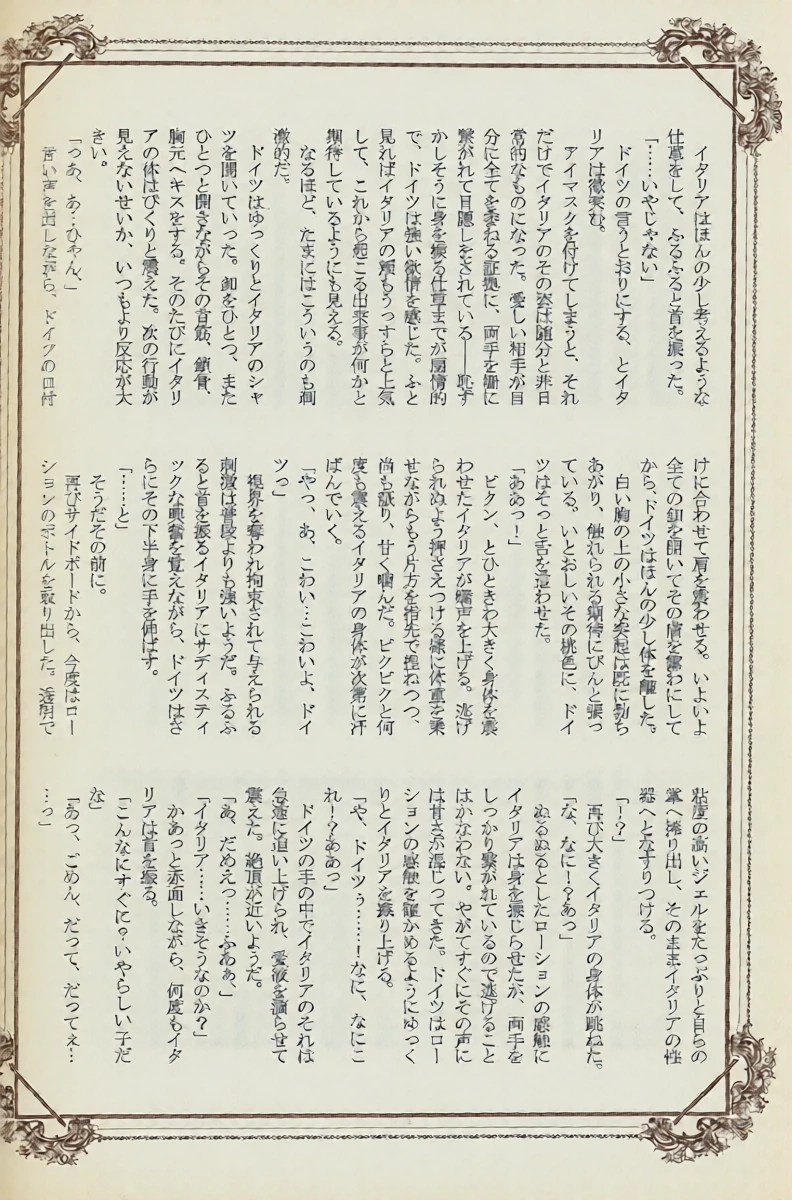 イタリアはほんの少し考えるような
仕草をして、ふるふると首を振った。
「……いやじゃない」
　ドイツの言うとおりにする、とイタ
リアは微笑む。
　アイマスクを付けてしまうと、それ
だけでイタリアのその姿は随分と非日
常的なものになった。愛しい相手が自
分に全てを委ねる証拠に、両手を柵に
繋がれて目隠しをされている――恥ず
かしそうに身を捩る仕草までが扇情的
で、ドイツは強い欲情を感じた。ふと
見ればイタリアの頬もうっすらと上気
して、これから起こる出来事が何かと
期待しているようにも見える。
　なるほど、たまにはこういうのも刺
激的だ。
　ドイツはゆっくりとイタリアのシャ
ツを開いていった。釦をひとつ、また
ひとつと開きながらその首筋、鎖骨、
胸元へキスをする。そのたびにイタリ
アの体はぴくりと震えた。次の行動が
見えないせいか、いつもより反応が大
きい。
「っあ、あ…ひゃん、」
　甘い声を出しながら、ドイツの口付
けに合わせて肩を震わせる。いよいよ
全ての釦を開いてその膚を露わにして
から、ドイツはほんの少し体を離した。
　白い胸の上の小さな突起は既に勃ち
あがり、触れられる期待にぴんと張っ
ている。いとおしいその桃色に、ドイ
ツはそっと舌を這わせた。
「ああっ！」
　ビクン、とひときわ大きく身体を震
わせたイタリアが嬌声を上げる。逃げ
られぬよう押さえつける様に体重を乗
せながらもう片方を指先で捏ねつつ、
尚も舐り、甘く噛んだ。ビクビクと何
度も震えるイタリアの身体が次第に汗
ばんでいく。
「やっ、あ、こわい…こわいよ、ドイ
ツっ」
　視界を奪われ拘束されて与えられる
刺激は普段よりも強いようだ。ふるふ
ると首を振るイタリアにサディスティ
ックな興奮を覚えながら、ドイツはさ
らにその下半身に手を伸ばす。
「……と」
　そうだその前に。
　再びサイドボードから、今度はロー
ションのボトルを取り出した。透明で
粘度の高いジェルをたっぷりと自らの
掌へ搾り出し、そのままイタリアの性
器へとなすりつける。
「！？」
　再び大きくイタリアの身体が跳ねた。
「な、なに！？あっ」
　ぬるぬるとしたローションの感触に
イタリアは身を捩じらせたが、両手を
しっかり繋がれているので逃げること
はかなわない。やがてすぐにその声に
は甘さが混じってきた。ドイツはロー
ションの感触を確かめるようにゆっく
りとイタリアを擦り上げる。
「や、ドイツぅ……！なに、なにこ
れ！？ああっ」
　ドイツの手の中でイタリアのそれは
急速に追い上げられ、愛液を滴らせて
震えた。絶頂が近いようだ。
「あ、だめえっ……ふあぁ、」
「イタリア……いきそうなのか？」
　かあっと赤面しながら、何度もイタ
リアは首を振る。
「こんなにすぐに？いやらしい子だ
な」
「あっ、ごめん、だって、だってぇ…
…っ」